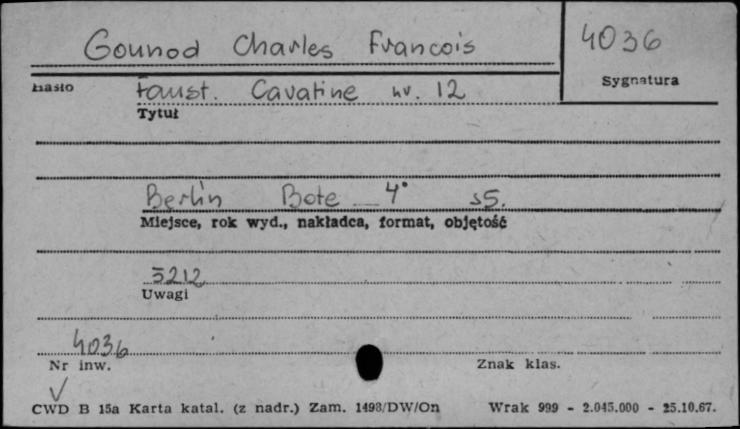 Gounod Charles Francois
4036
Sygnatura
Hasło
Faust. Cavatine nr. 12
Tytuł
Berlin Bote 4° s5.
Miejsce, rok wyd., nakładca, format, objętość
5212
Uwagi
4036
Nr inw.
Znak klas.
CWD B 15a Karta katal. (z nadr.) Zam. 1498/DW/On
Wrak 999 - 2.045.000 - 25.10.67.